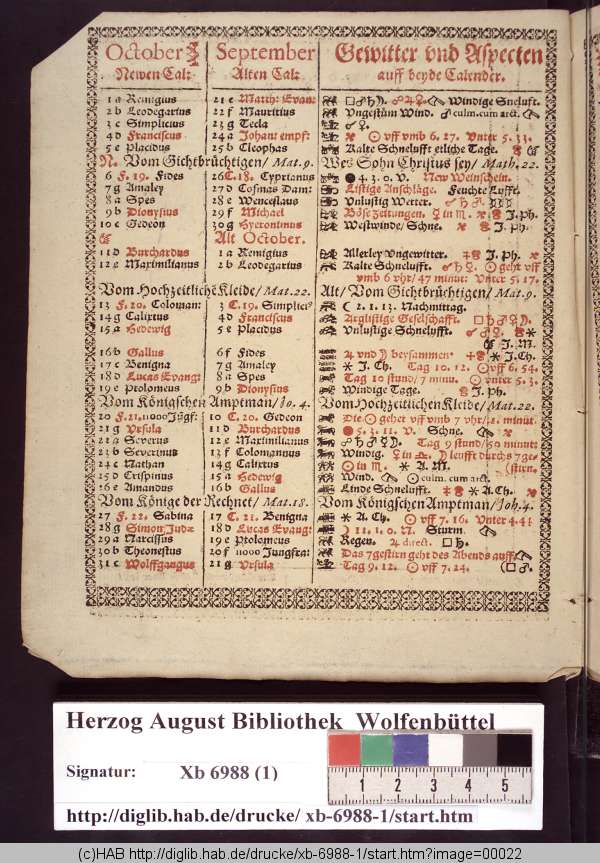 October September Gewitter vnd Aspecten
Newen Cal: Alten Cal: auff beyde Calender.
1 a Remigius 21 e Matth: Evan: Windige Sneluft.
2 b Leodegarius 22 f Mauritius Vngestüm Wind. culm. cum arct.
3 c Simplicius 23 g Tecla
4 d Franciscus 24 a Johan: empf: vff vmb 6. 27. Vnter 5. 33.
5 e Placidus 25 b Cleophas Kalte Schnelufft etliche Tage.
N. Vom Gichtbrüchtigen / Mat. 9. Wes Sohn Christus sey / Math. 22.
6 F. 19. Fides 26 C. 18. Cyprianus 4. 3. 0. V. New Weinschein.
7 g Amaley 27 d Cosmas Dam: Listige Anschläge. Feuchte Lufft.
8 a Spes 28 e Wenceslaus Vnlustig Werter.
9 b Dionysius 29 f Michael Böse Zeitungen. in J. Ph.
10 c Gedeon 30 g Hyeronimus Westwinde / Schne. J. Ph.
Alt October.
11 d Burchardus 1 a Remigius Allerley Vngewitter. J. Ph.
12 e Maximilianus 2 b Leodegarius Kalte Schnelufft. geht vff
vmb 6 vhr / 47 minut: Vnter 5. 17.
Vom Hochzeitliche Kleide / Mat. 22. Alt / Vom Gichtbrüchtigen / Mat. 9.
13 F. 20. Coloman: 3 C. 19. Simplici9 2. 1. 13. Nachmittag.
14 g Calixtus 4 d Franciscus Arglistige Geselschafft.
15 a Hedewig 5 e Placidus Vnlustige Schnelufft.
J. M.
16 b Gallus 6 f Fides vnd beysammen J. Ch.
17 c Benigna 7 g Amaley J. Ch. Tag 10. 12. vff 6. 54.
18 d Lucas Evang: 8 a Spes Tag 10 stund / 7 minu. vnter 5. 3.
19 e Ptolomeus 9 b Dionysius Windige Tage. J. Ph.
Vom Königschen Amptman / Jo. 4. Vom Hochzeitlichen Kleide / Mat. 22.
20 F. 21. 11000 Jügf: 10 C. 20. Gedeon Die gehet vff vmb 7 vhr / 1. minut.
21 g Vrsula 11 d Burchardus 5. 3. 11. V. Schne.
22 a Severus 12 e Maximilianus Tag 9 stund / 50 minut
23 b Severinus 13 f Colomannus Windig. in leufft durchs 7ge-
24 c Nathan 14 g Calixtus in A. M. (stirn.
25 d Crispinus 15 a Hedewig Wind. culm. cum arct.
26 e Amandus 16 b Gallus Linde Schnelufft. A. Ch.
Vom Könige der Rechnet / Mat. 18. Vom Königschen Amptman / Joh. 4.
27 F. 22. Sabina 17 C. 21. Benigna A. Ch. vff 7. 16. Vnter 4. 44
28 g Simon Jude 18 d Lucas Evang: 11. 1. 0. N. Sturm.
29 a Narcissus 19 e Ptolomeus Regen. direct.
30 b Theonestus 20 f 11000 Jungfra: Das 7gestirn geht des Abends auff
31 c Wolffgangus 21 g Vrsula Tag 9. 12. vff 7. 24.
Herzog August Bibliothek Wolfenbüttel
Signatur: Xb 6988 (1)
1 2 3 4 5
http://diglib.hab.de/drucke/ xb-6988-1/start.htm
(c)HAB http://diglib.hab.de/drucke/xb-6988-1/start.htm?image=00022